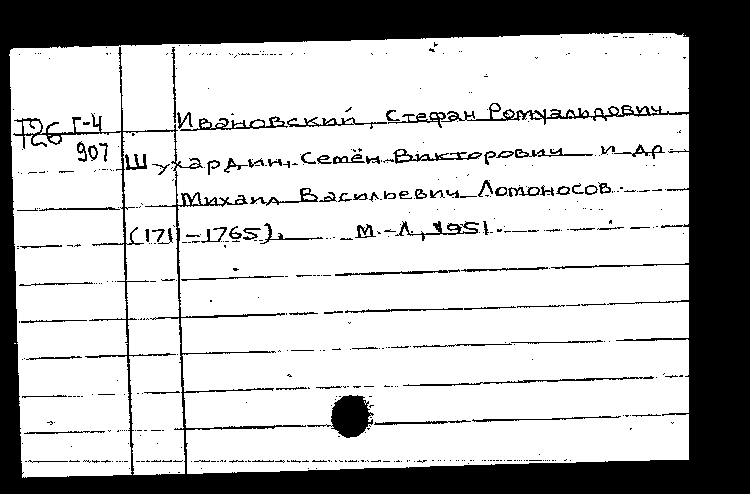 Т26 Г-4 Ивановский, Стефан Ромуальдович.
907 Шухардин, Семён Викторович и др.
Михаил Васильевич Ломоносов.
(1711-1765). М.-Л., 1951.